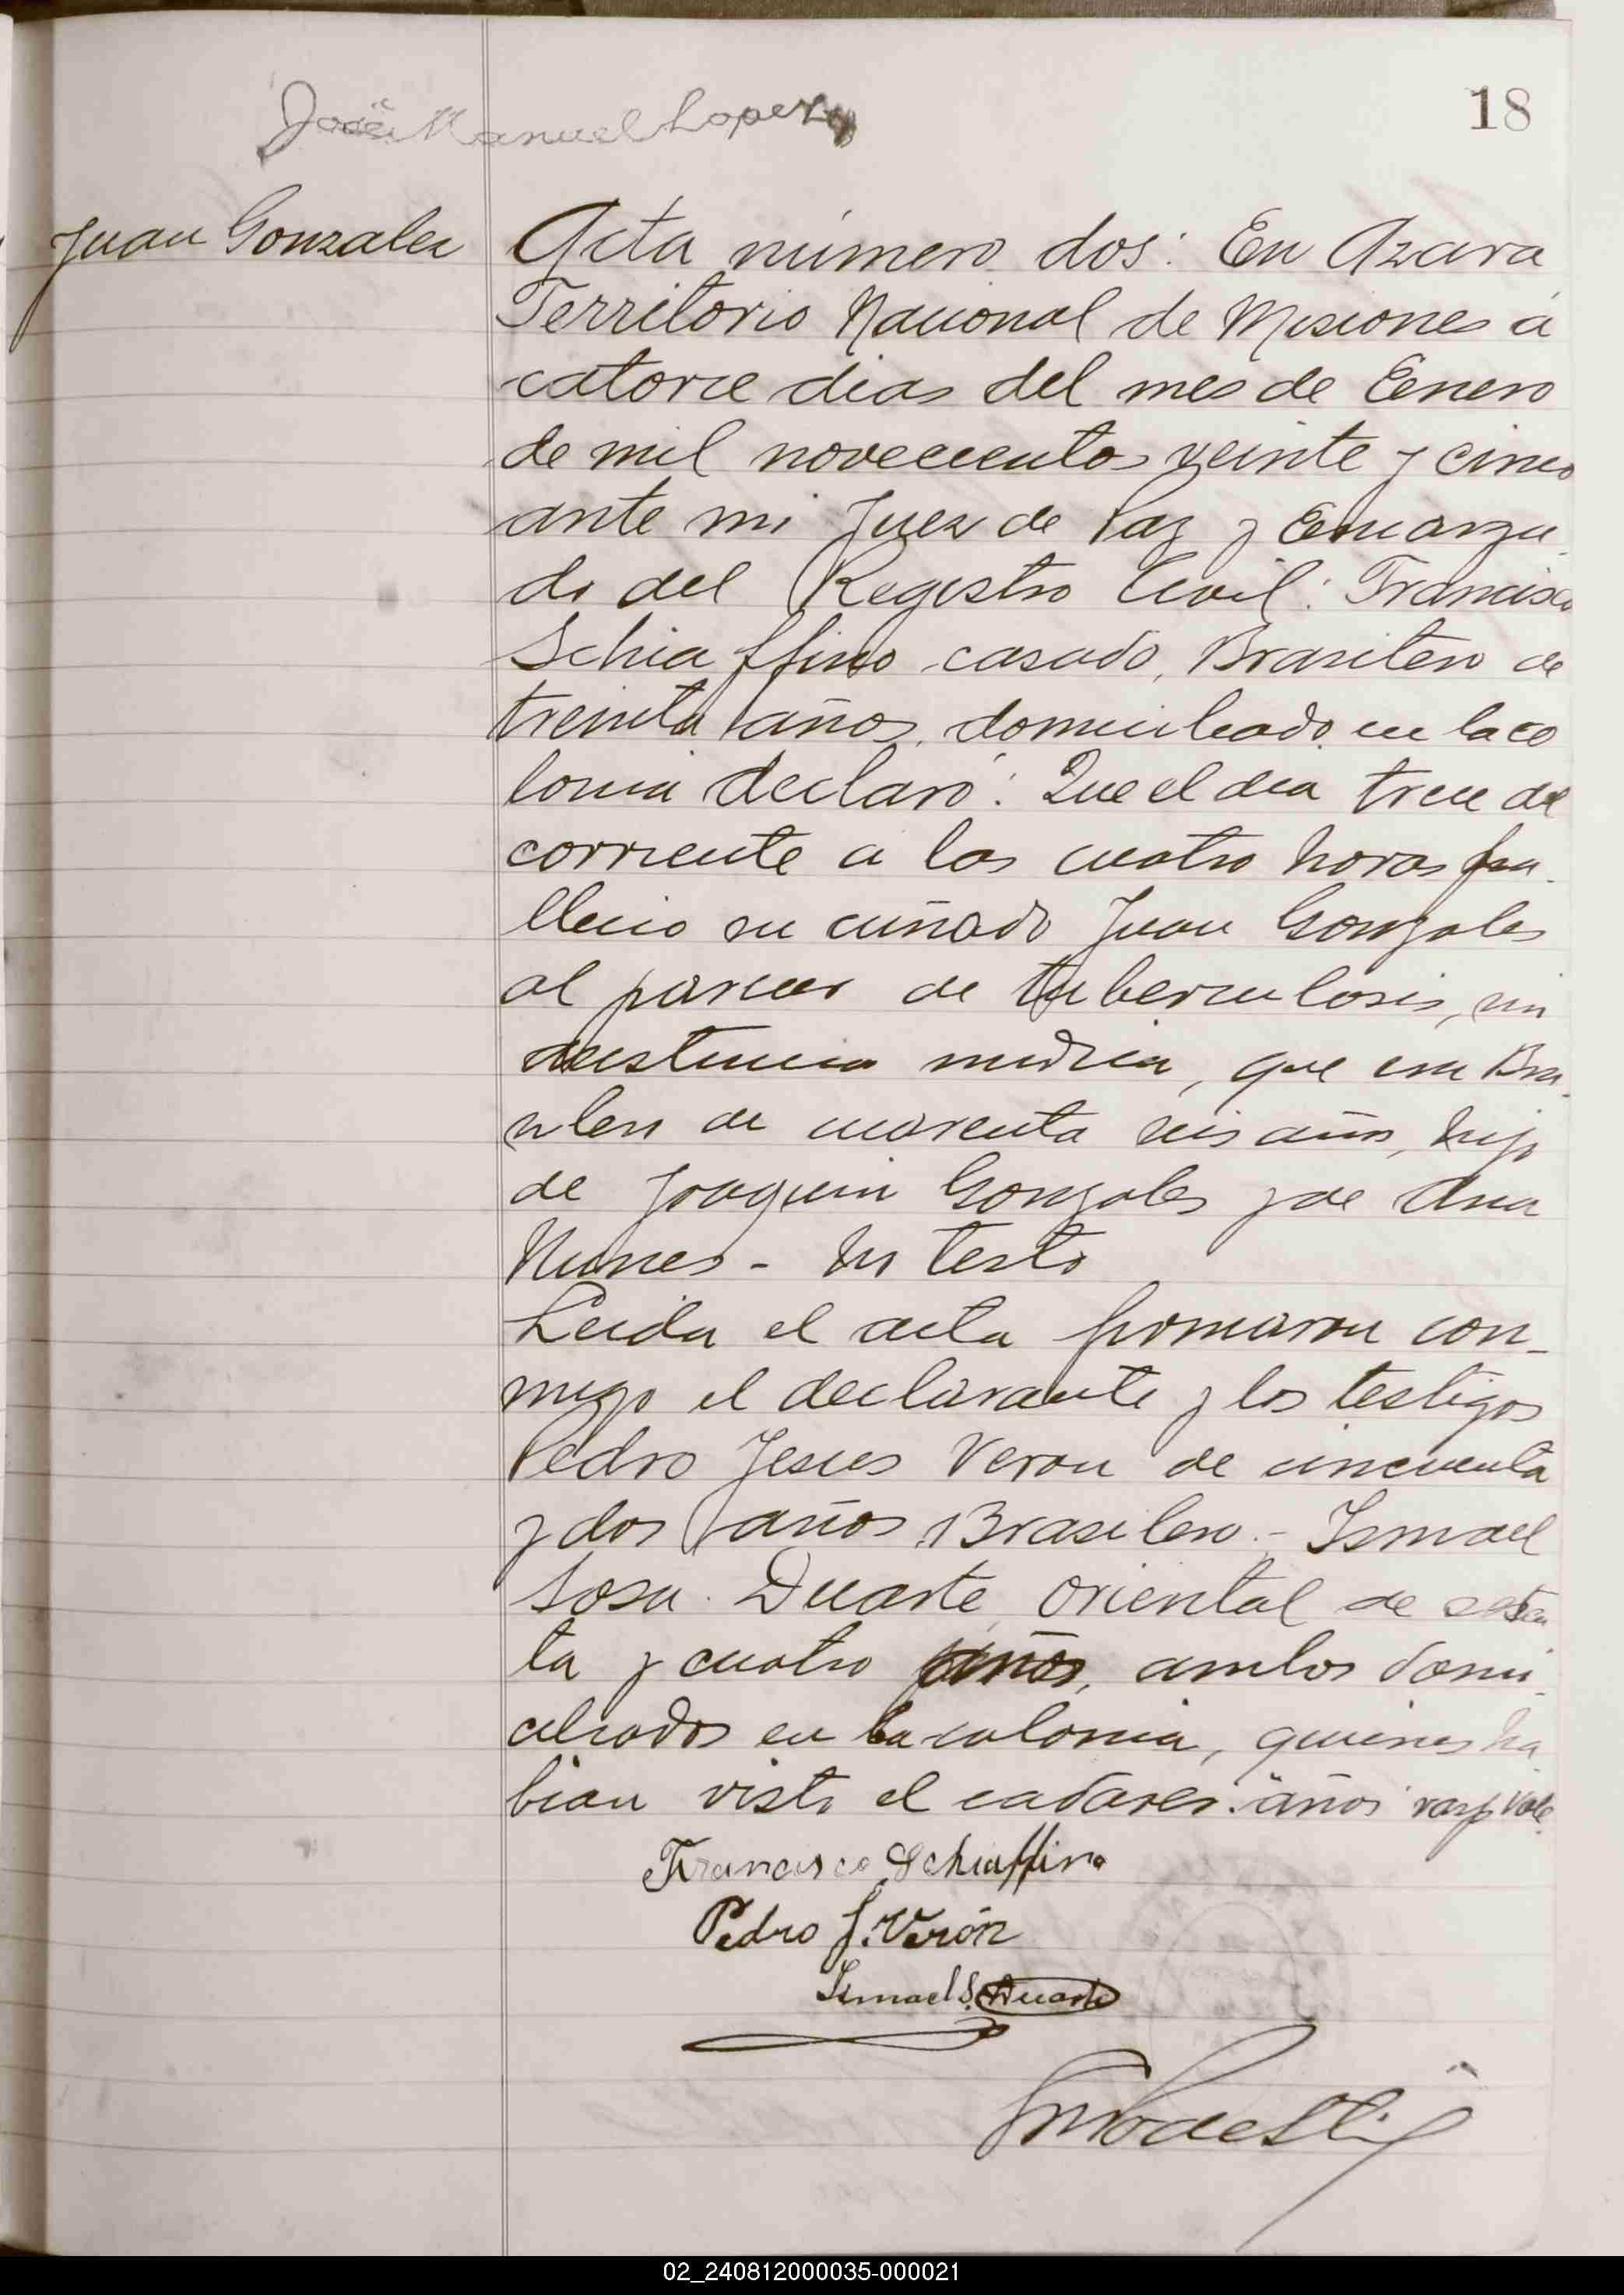 José Manuel Lopez
18
Juan Gonzalez
Acta número dos: En Azara
Territorio Nacional de Misiones á
catorce dias del mes de Eenero
de mil novecientos veinte y cinco
ante mi Juez de Paz y Encarga
do del Registro Civil: Francisco
Schiaffino casado, Brasilero de
treinta años, domiciliado en la co
lonia declaró: Que el dia trece del
corriente a las cuatro horas fa
llecio su cuñado Juan Gonzales
al parecer de tuberculosis, sin
asistencia medica, que era Bra
silero de cuarenta seis años, hijo
de Joaquin Gonzales y de Ana
Nunes - No testó
Leida el acta firmaron con-
migo el declarante y los testigos
Pedro Jesus Veron de cincuenta
y dos años Brasilero.- Ismael
Sosa Duarte oriental de
ta y cuatro años, ambos domi
ciliados en la colonia, quienes ha
bian visto el cadaver. "años" rasp vale
Francisco Schiaffino
Pedro J. Verón
Ismael S. Duarte
02_240812000035-000021